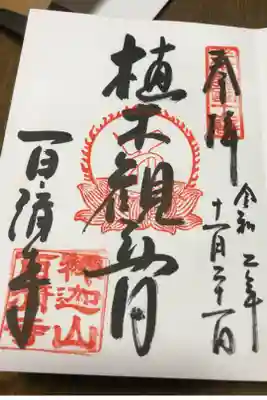 奉拝
令和二年
十一月二十一日
植木観音
百済寺
釋迦山
百濟寺